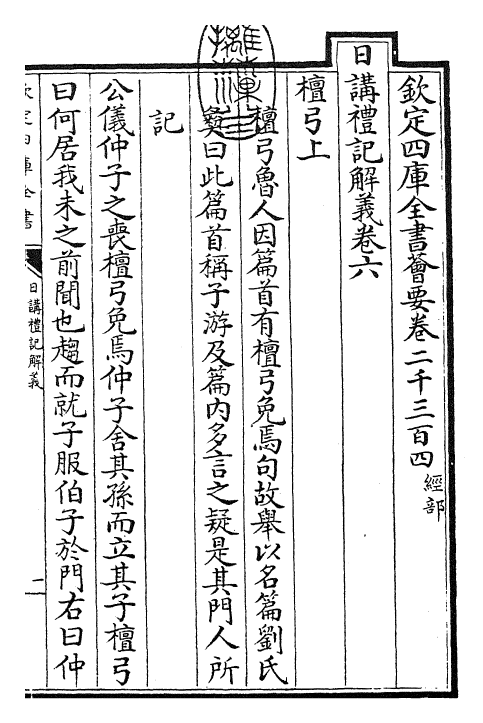 欽定四庫全書薈要卷二千三百四 經部
日講禮記解義卷六
檀弓上
檀弓魯人因篇首有檀弓免焉句故舉以名篇劉氏
彛曰此篇首稱子游及篇內多言之疑是其門人所
記
公儀仲子之喪檀弓免焉仲子舍其孫而立其子檀弓
曰何居我未之前聞也趨而就子服伯子於門右曰仲
欽定四庫全書
日講禮記解義